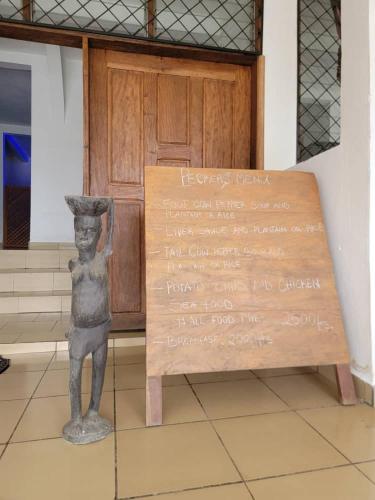 PECKERS MENU
- FOOT COW PEPPER SOUP AND
PLANTAIN OR RICE
- LIVER SAUCE AND PLANTAIN OR RICE
- TAIL COW PEPPER SOUP AND
PLANTAIN OR RICE
- POTATO CHIPS AND CHICKEN
SEA FOOD
ALL FOOD 2500
- BREAKFAST 2000